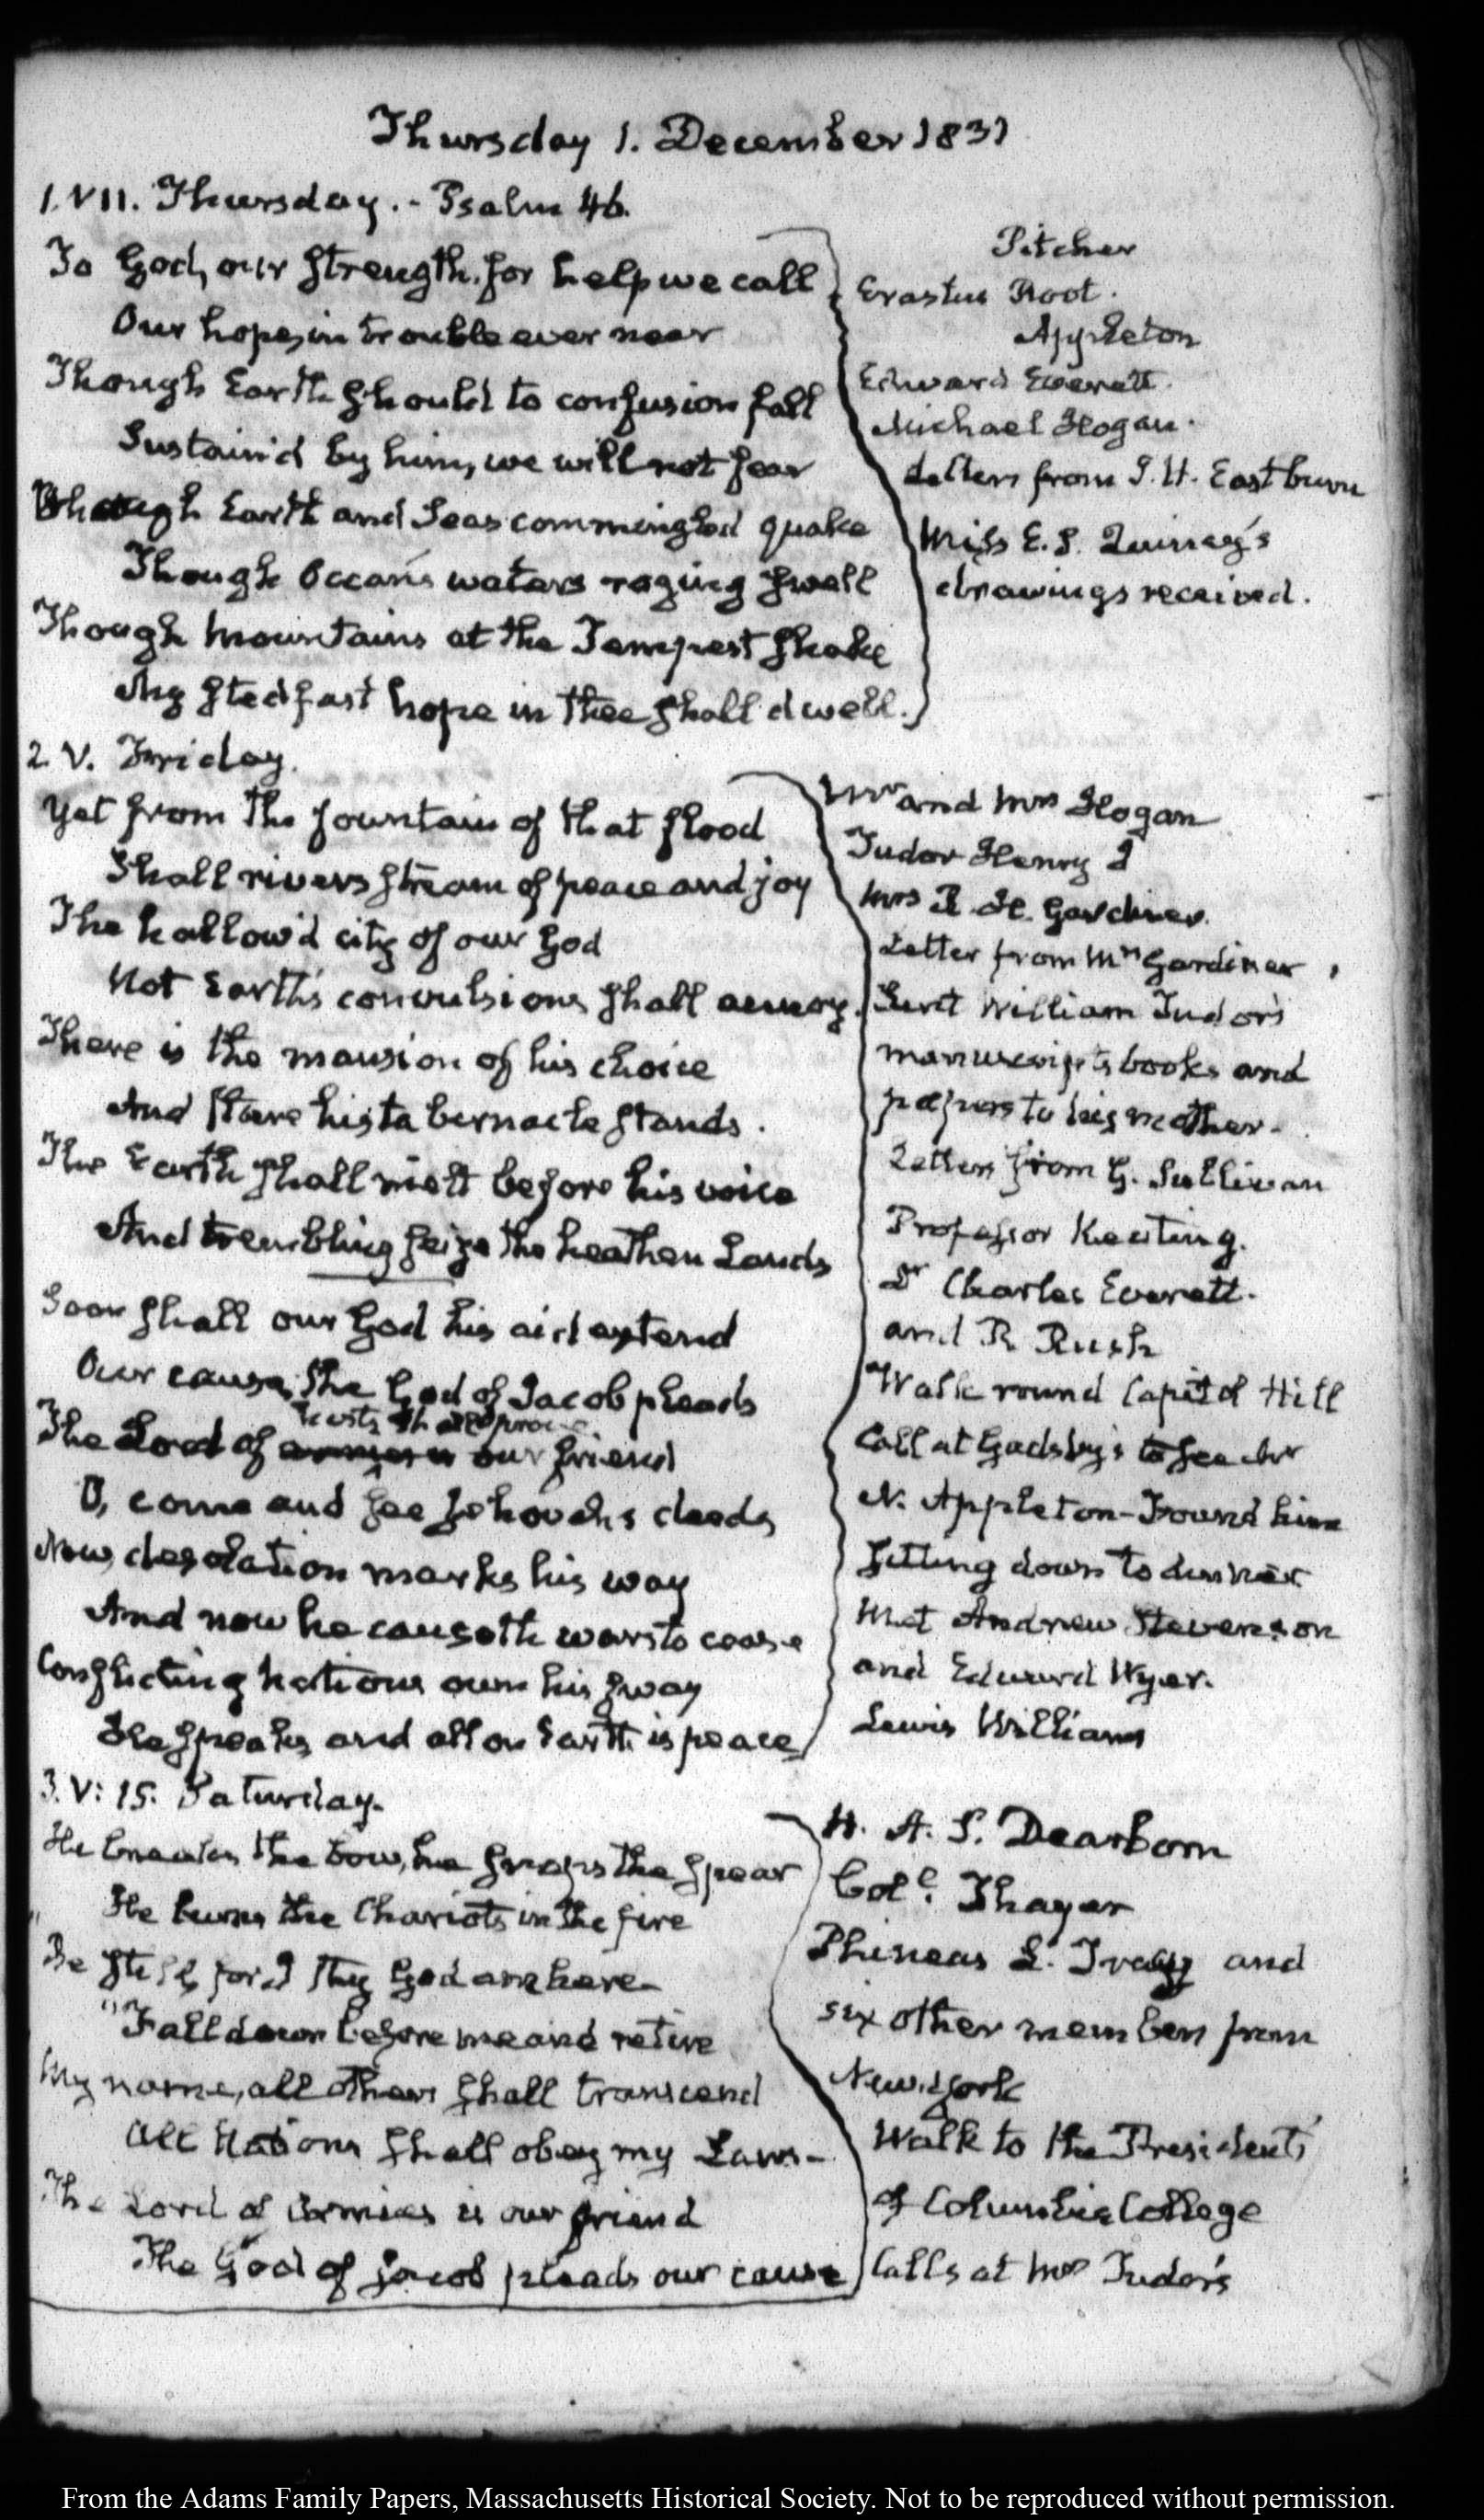 Thursday 1. December 1831
1. VII. Thursday. - Psalm 46.
To God, our strength, for help we call
Our hope, in trouble ever near
Though Earth should to confusion fall
Sustain'd by him, we will not fear
Though Earth and Seas commingled quake
Though Ocean's waters raging swell
Though Mountains at the Tempest shake
My stedfast hope in thee shall dwell.
Pitcher
Erastus Root.
Appleton
Edward Everett.
Michael Hogan.
Letters from J. H. Eastburn
Miss E. S. Quincy's
drawings received.
2. V. Friday.
Yet from the fountain of that flood
Shall rivers stream of peace and joy
The hallow'd city of our God
Not Earth's convulsions shall annoy.
There is the mansion of his choice
And there his tabernacle stands.
The Earth shall melt before his voice
And trembling seize the heathen Lands
Soon shall our God his aid extend
Our cause, the God of Jacob pleads
hosts shall prove
The Lord of armies is our friend
O, come and see Jehovah's deeds
Now, desolation marks his way
And now he causeth wars to cease
Conflicting nations own his sway
He speaks, and all on Earth is peace
Mr and Mrs Hogan
Tudor Henry J
Mrs R. H. Gardiner.
Letter from Mrs Gardiner
Sent William Tudor's
manuscripts books and
papers to his mother-
Letters from G. Sullivan
Professor Keating.
Dr Charles Everett.
and R Rush
Walk round Capitol Hill
Call at Gadsby's to see Mr
N. Appleton - Found him
sitting down to dinner
Met Andrew Stevenson
and Edward Wyer.
Lewis Williams
3. V: 15. Saturday.
He breaks the bow, he snaps the spear
He burns the Chariots in the fire
Be still, for I thy God am here-
"Fall down before me and retire
My name, all others shall transcend
All Nations shall obey my Laws-
The Lord of armies is our friend
The God of Jacob pleads our cause
H. A. S. Dearborn
Colc. Thayer
Phineas L. Tracy and
six other members from
New-York
Walk to the President's
of Columbia College
Calls at Mrs Tudor's
From the Adams Family Papers, Massachusetts Historical Society. Not to be reproduced without permission.